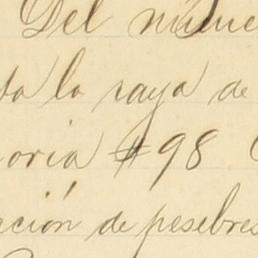 Del núme
ta la raya de
oria #98
ación de pesebres